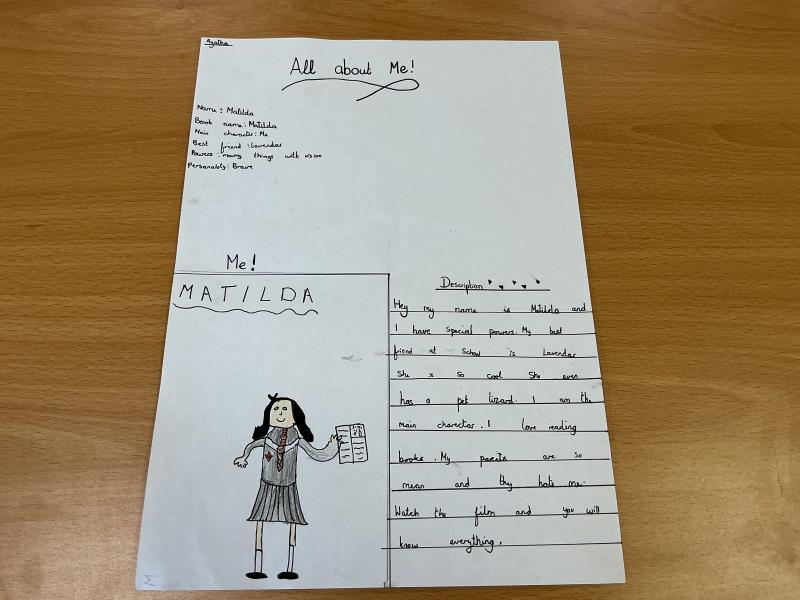 Agatha
All about Me!
Name: Matilda
Book name: Matilda
Main character: Me
Best friend: Lavendar
Powers: moving things with vision
Personality: Brave
Me!
MATILDA
Description
Hey my name is Matilda and
I have special powers. My best
friend at School is Lavendar
She is so cool She even
has a pet lizard. I am the
main charectar. I love reading
books. My parents are so
mean and they hate me.
Watch the film and you will
know everything.